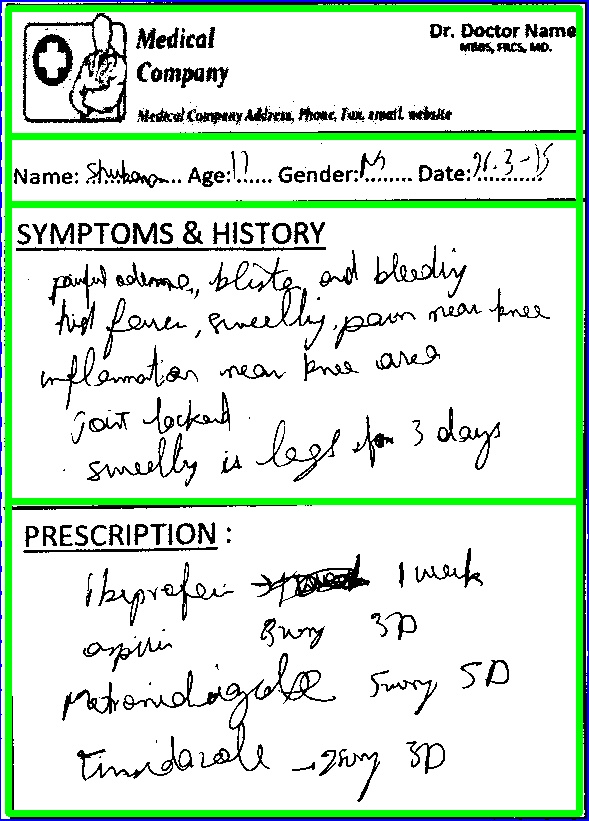 Medical
Company
Dr. Doctor Name
MBBS, FRCS, MD.
Medical Company Address, Phone, Fax, email, website
Name: Age: Gender: M Date: 3-15
SYMPTOMS & HISTORY
painful and bleeding
high fever, swelling, pain near knee
inflammation near knee area
joint locked
swelling is legs for 3 days
PRESCRIPTION :
Ibuprofein 1 week
aspirin 3D
Metronidagole 5D
Tinidazole 3D